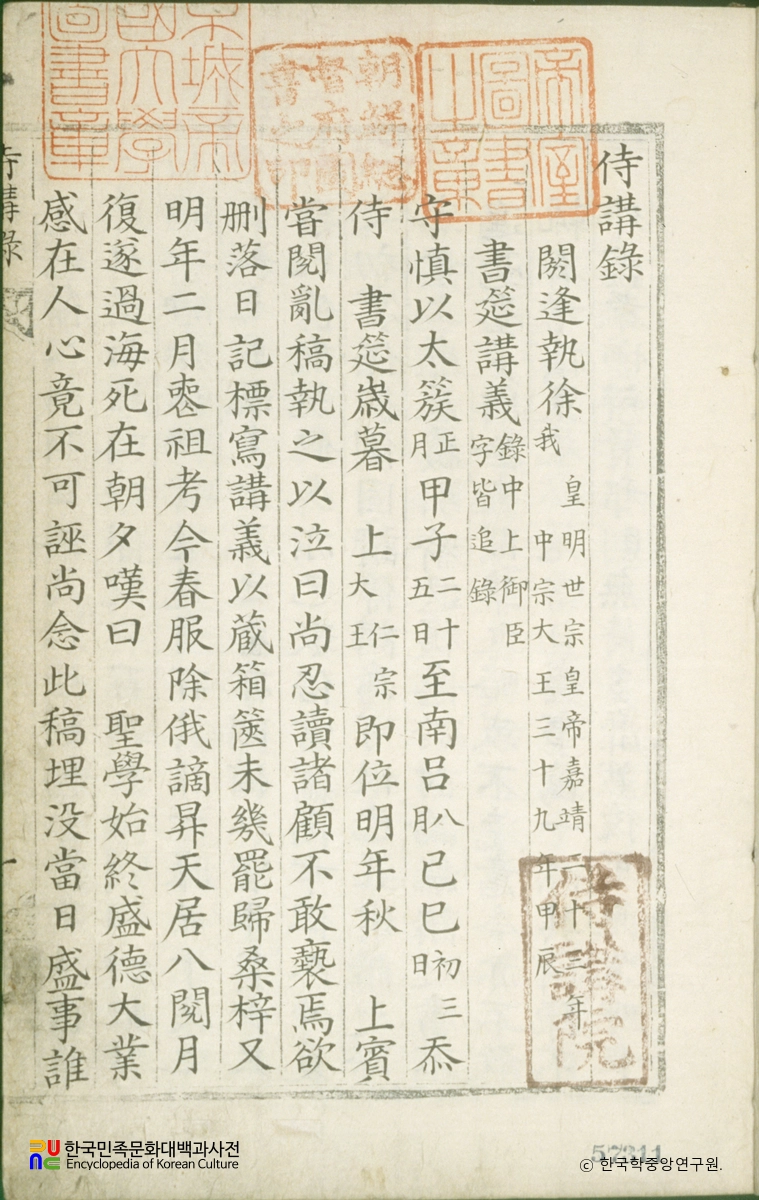 帝室圖書之章
朝鮮總督府圖書之印
京城帝國大學圖書章
侍講錄
閼逢執徐 我 皇明世宗皇帝嘉靖二十三年 中宗大王三十九年甲辰
書筵講義 錄中上御臣字皆追錄
守慎以太簇 正月 甲子 二十五日 至南呂 八月 己巳 初三日 忝
侍 書筵歲暮 上 仁宗大王 即位明年秋 上賓
嘗閱亂稿執之以泣曰尚忍讀諸顧不敢褻焉欲
刪落日記標寫講義以蔵箱篋未幾罷歸桑梓又
明年二月喪祖考今春服除俄謫昇天居八閱月
復遂過海死在朝夕嘆曰 聖學始終盛德大業
感在人心竟不可誣尚念此稿埋没當日盛事誰
侍講錄
侍講院
한국민족문화대백과사전
Encyclopedia of Korean Culture
ⓒ 한국학중앙연구원.